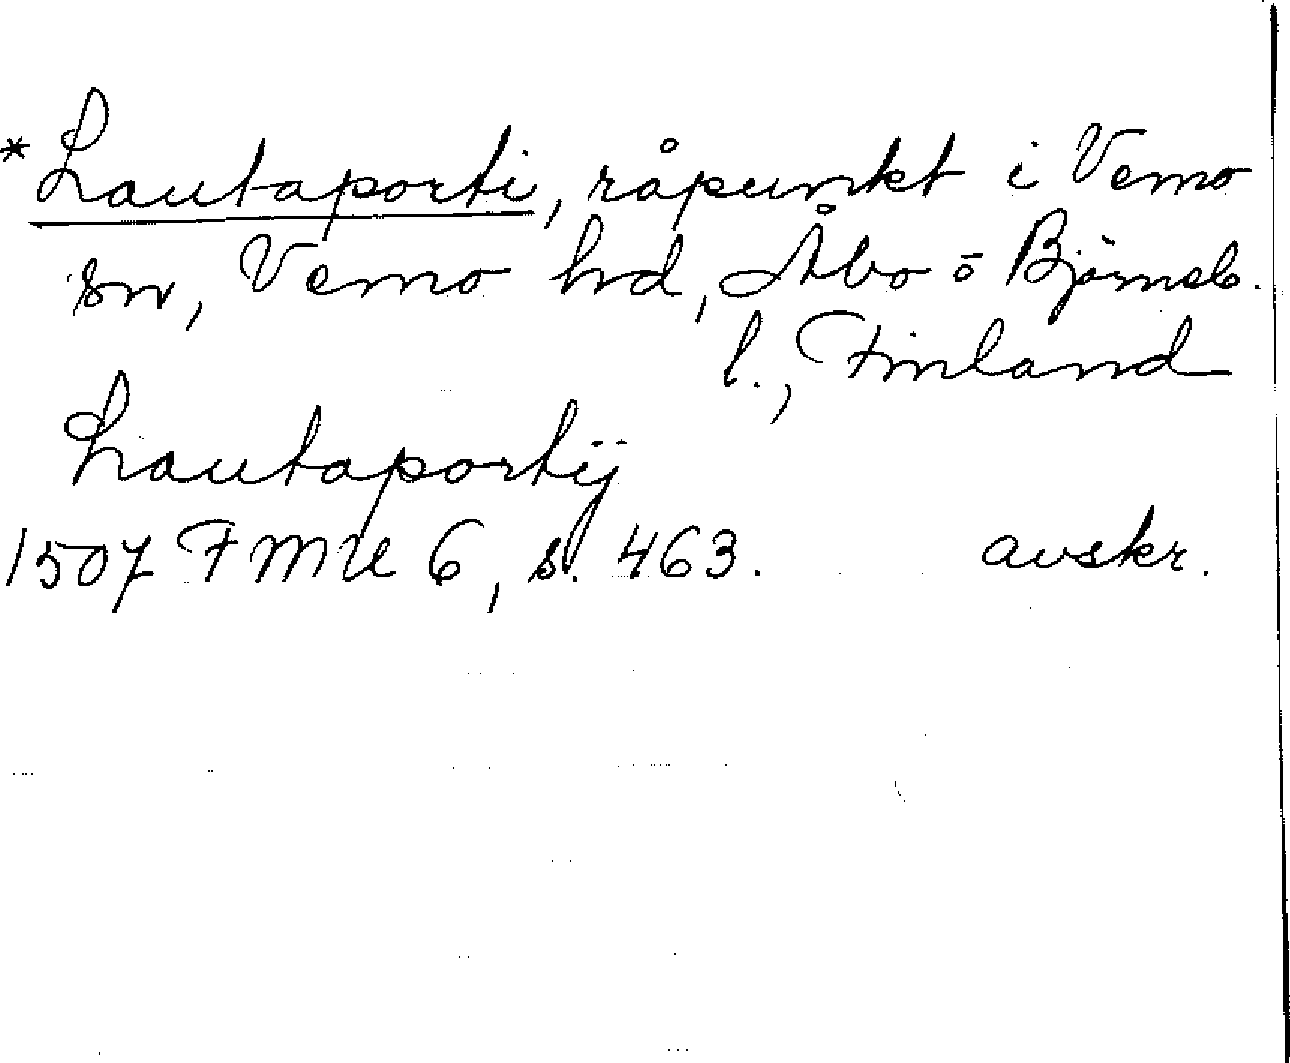 *Lautaporti, råpunkt i Vemo
sn, Vemo hd, Åbo o Björneb.
l., Finland
Lautaportÿ
1507 FMU 6, s. 463. avskr.